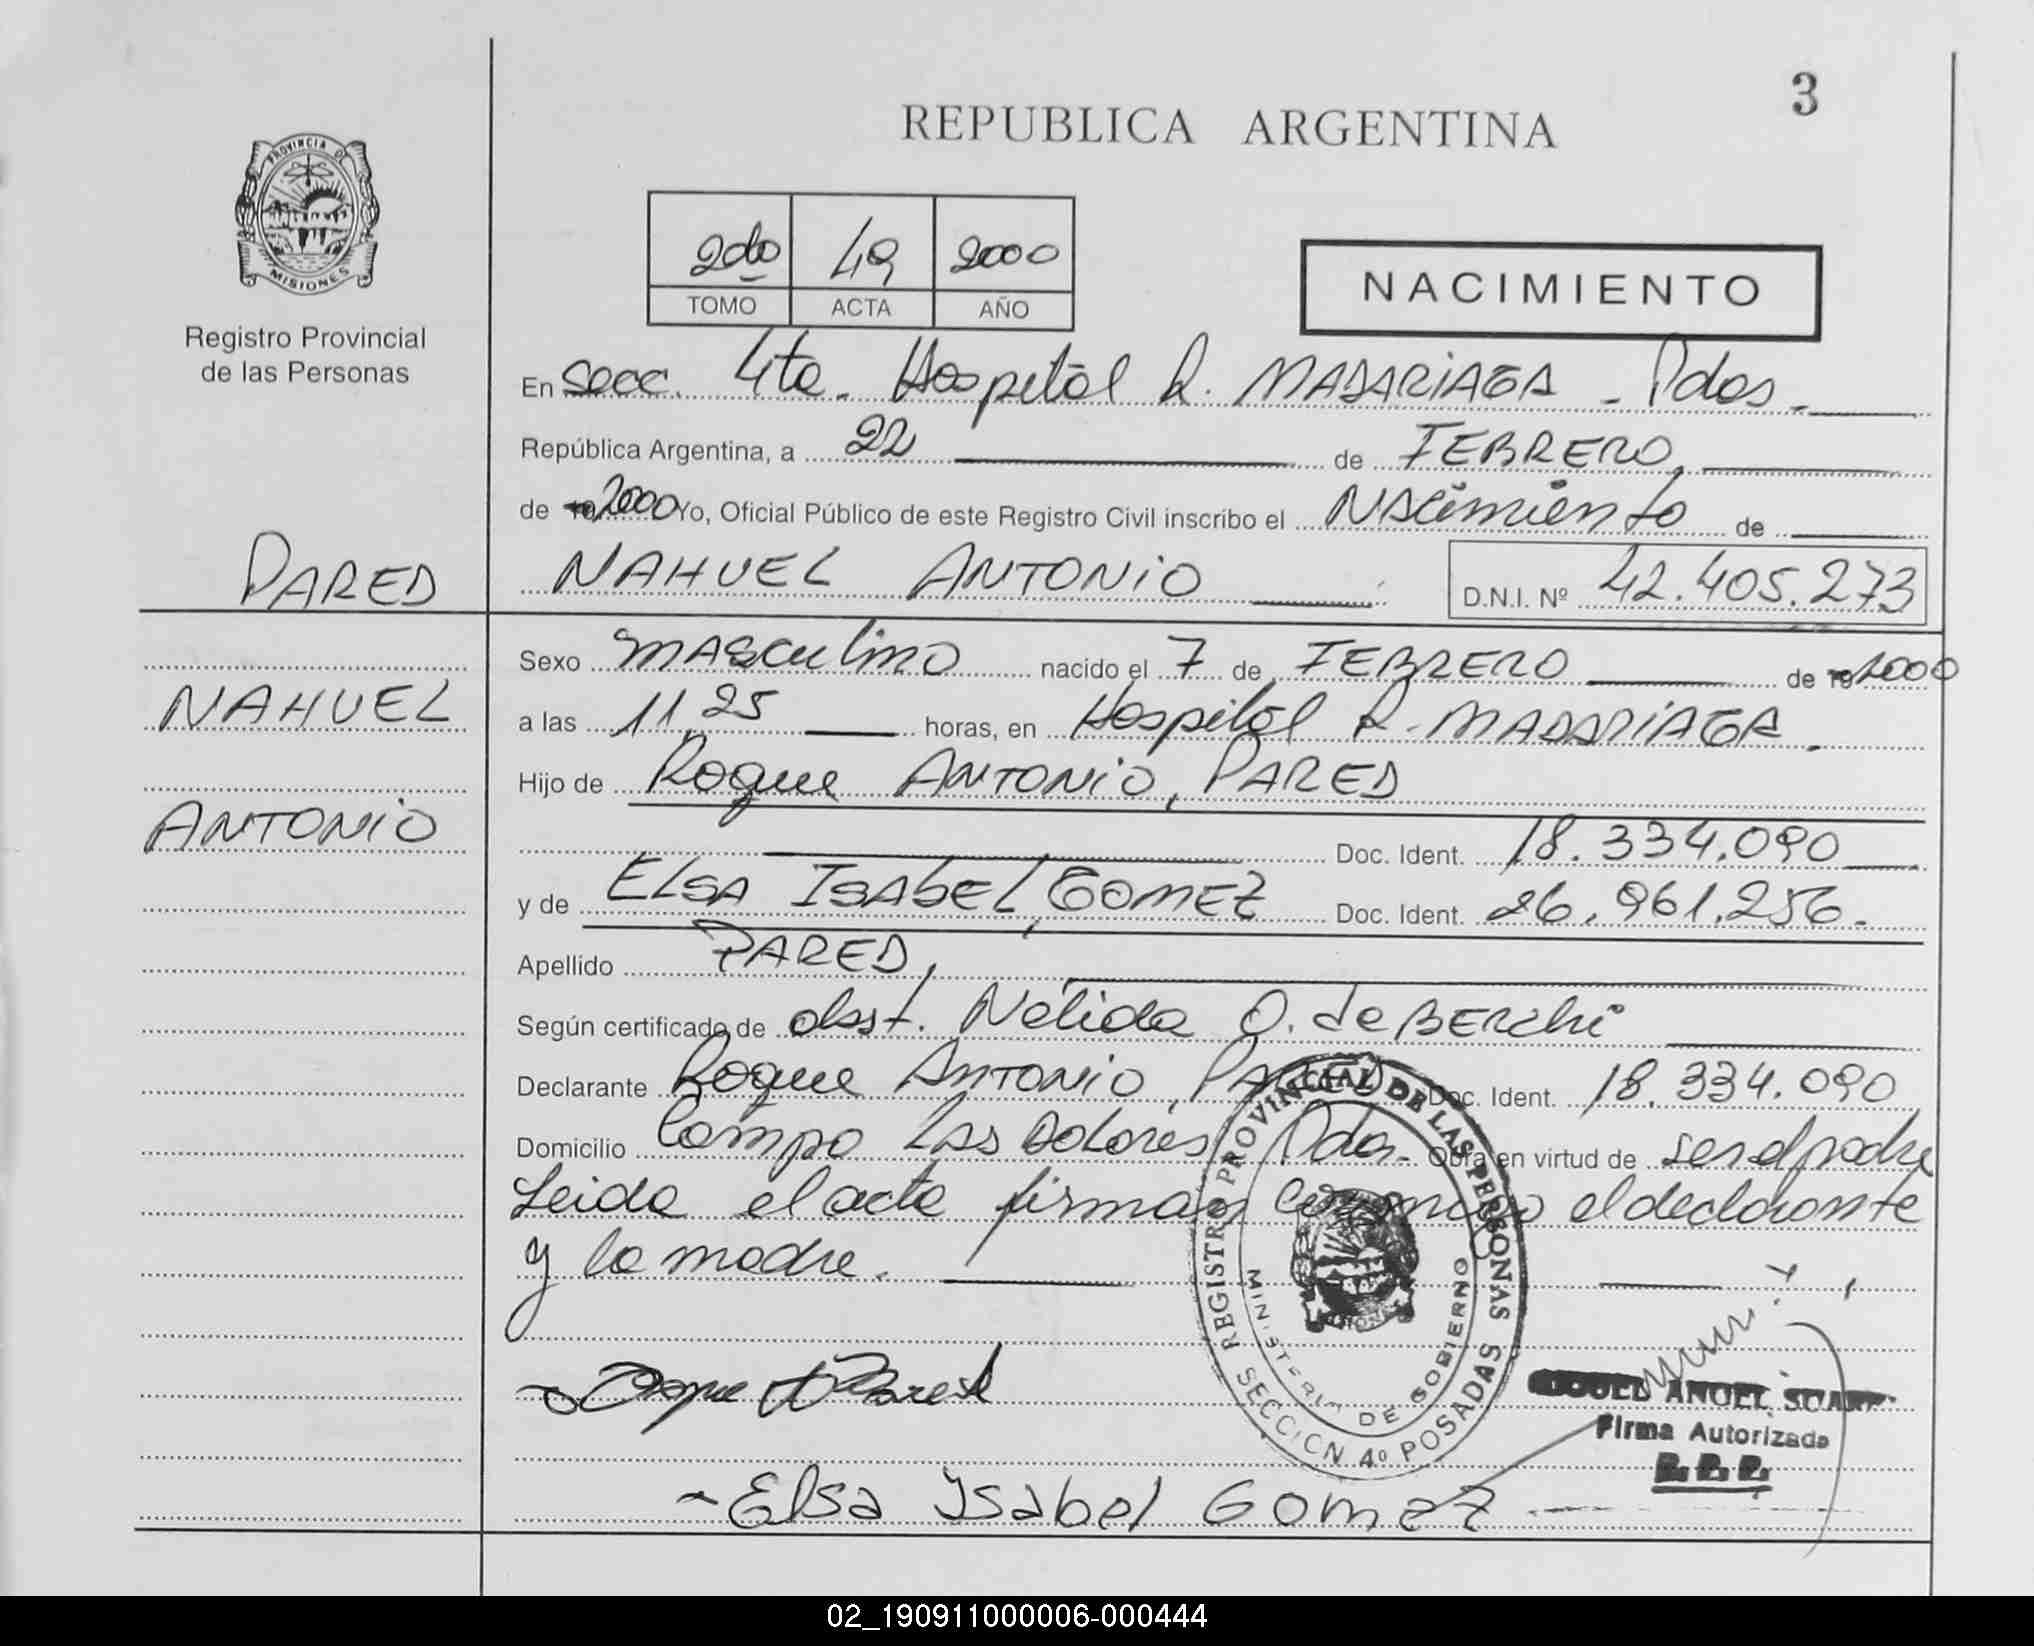 3
REPUBLICA ARGENTINA
PROVINCIA DE
MISIONES
Registro Provincial
de las Personas
2do 49 2000
TOMO ACTA AÑO
NACIMIENTO
En Secc. 4ta. Hospital R. MADARIAGA - Pdas.
República Argentina, a 22 de FEBRERO,
de 19 2000 Yo, Oficial Público de este Registro Civil inscribo el Nacimiento de
PARED NAHUEL ANTONIO D.N.I. Nº 42.405.273
Sexo masculino nacido el 7 de FEBRERO de 19 2000
NAHUEL a las 11,25 horas, en Hospital R. MADARIAGA.
Hijo de Roque ANTONIO, PARED
ANTONIO Doc. Ident. 18.334.090
y de ELSA ISABEL, GOMEZ Doc. Ident. 26.961.256.
Apellido PARED,
Según certificado de obst. Nélida O. de BERCHI
Declarante Roque ANTONIO, PARED Doc. Ident. 18.334.090
Domicilio Campo Las Dolores, Pdas. Obra en virtud de ser el padre
Leida el acta firman conmigo el declarante
y la madre.
REGISTRO PROVINCIAL DE LAS PERSONAS
MINISTERIO DE GOBIERNO
SECCION 4º POSADAS
Roque A Pared
ANGEL
Firma Autorizada
R. P. P.
Elsa Isabel Gomez
02_190911000006-000444